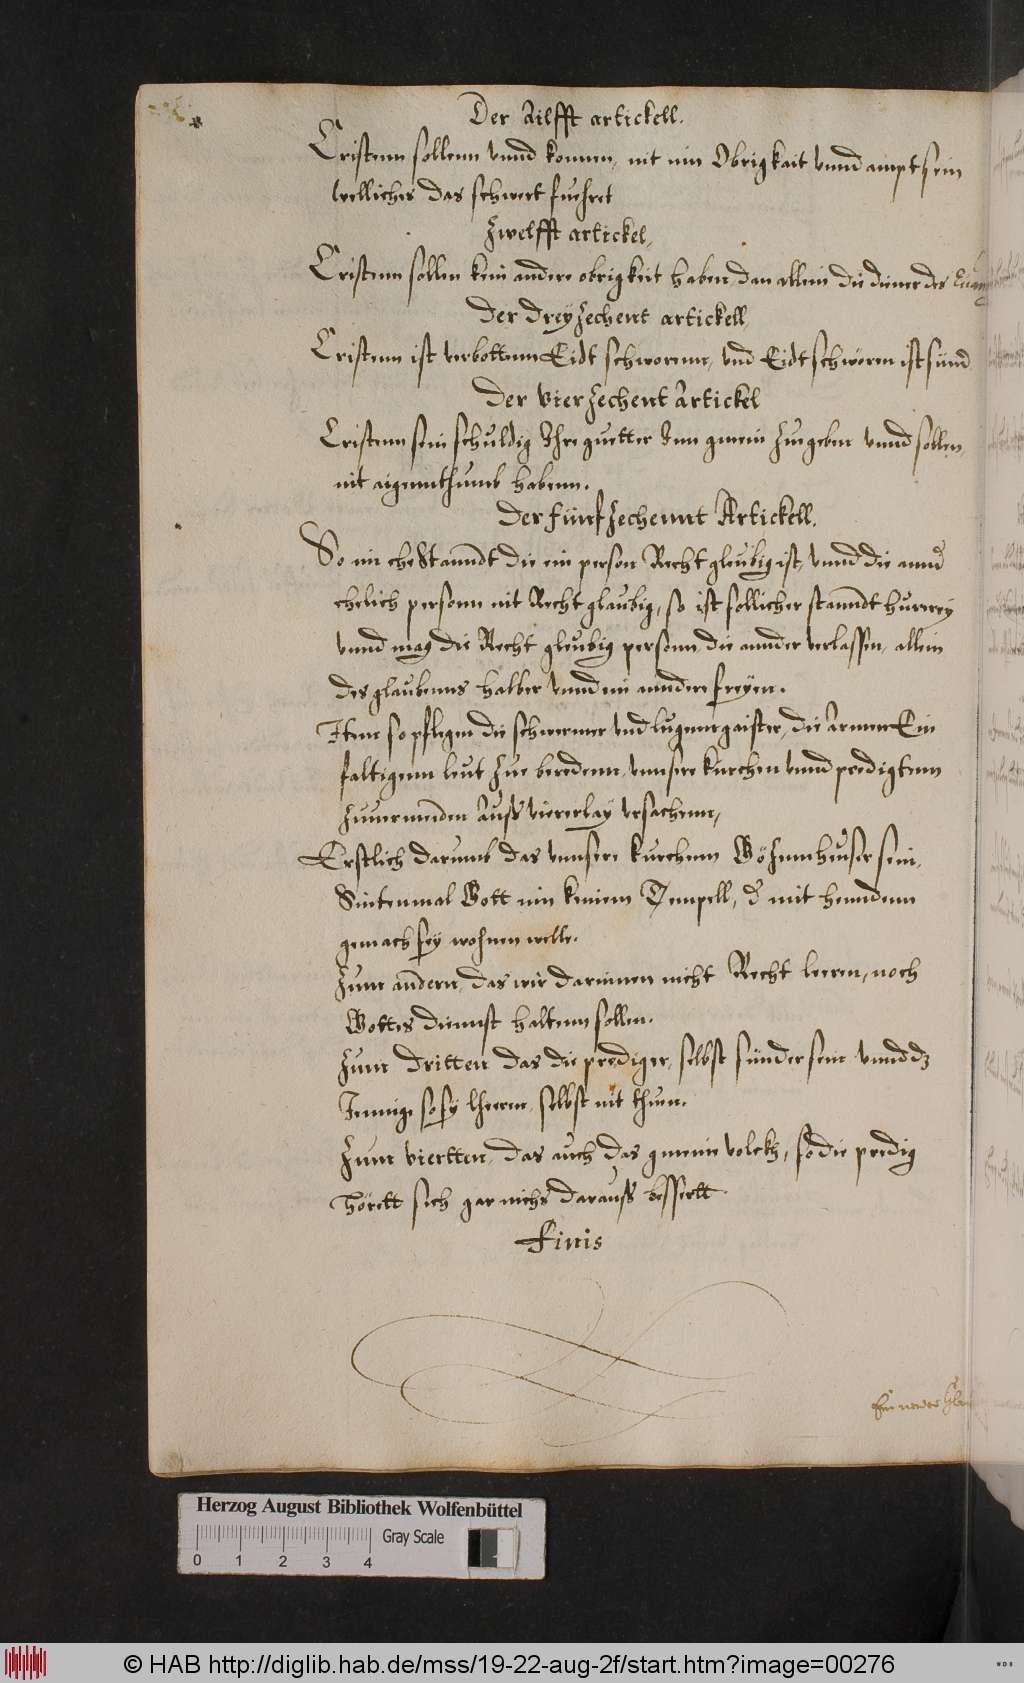 Der Ailfft artickell.
Cristenn sollenn vnnd konnen, nit inn Obrigkait vnnd ampt sein
wellicher das schwert fuehret
Zwelfft artickel,
Cristenn sollen kein andere obrigkeit haben, dan allein die diener des
der dreyzechent artickell
Cristenn ist verbottenn Eidt schwerenn, vnd Eidt schwören ist sünd
der vierzechent Artickel
Cristenn sein schuldig Ihre guetter Inn gmein zugeben vnnd sollen
nit aigenthumb habenn.
der fünfzechennt Artickell.
So im ehe Stanndt die ein person Recht gleubig ist, vnnd die annd
ehelich personn nit Recht glaubig, so ist sollicher stanndt hurrerey
vnnd mag die Recht gleubig personn, die annder verlassen, allein
des glaubenns halber vnnd ein anndere freyen.
Item so pflegen die schwermer vnd lugenngaister, die Armen Ein
faltigenn leut zue beredenn, vnnsere kürchen vnnd predigtenn
zuuermeiden Auß viererlay vrsachenn,
Erstlich darumb das vnnsere kurchenn Gözennheuser sein,
Sintenmal Gott inn keinem Tempell, d mit henndenn
gemach sey wohnen welle.
Zum andern, das wir darinnen nicht Recht leeren, noch
Gottes diennst haltenn sollen.
Zum dritten das die prediger, selbst sünder sein vnnd dz
Jennige so sy lheeren, selbst nit thuen.
Zum viertten, das auch das gmeine volckh, so die predig
hörett sich gar nichs darauß bessertt.
Finis
Ein newer
Herzog August Bibliothek Wolfenbüttel
Gray Scale
0 1 2 3 4
© HAB http://diglib.hab.de/mss/19-22-aug-2f/start.htm?image=00276